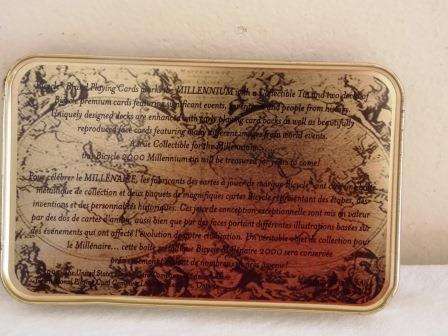 Playing Cards marks the MILLENNIUM with a Collectible Tin and two decks
premium cards featuring significant events, and people from history.
Uniquely designed decks are enhanced with playing card backs as well as beautifully
reproduced face cards featuring many different images from world events.
A true Collectible for the Millennium
the Bicycle 2000 Millennium tin will be treasured for years to come!
Pour célébrer le MILLÉNAIRE, les fabricants des cartes à jouer de marque Bicycle ont
métallique de collection et deux paquets de magnifiques cartes Bicycle représentant des étapes, des
inventions et des personnages historiques. Ces jeux de conception exceptionnelle sont mis en valeur
par des dos de cartes aussi bien que par des faces portant différentes illustrations basées sur
des événements qui ont affecté l'évolution de notre civilisation. Un véritable objet de collection pour
le Millénaire... cette boîte Bicycle Millénaire 2000 sera conservée
de nombreuses
The United States